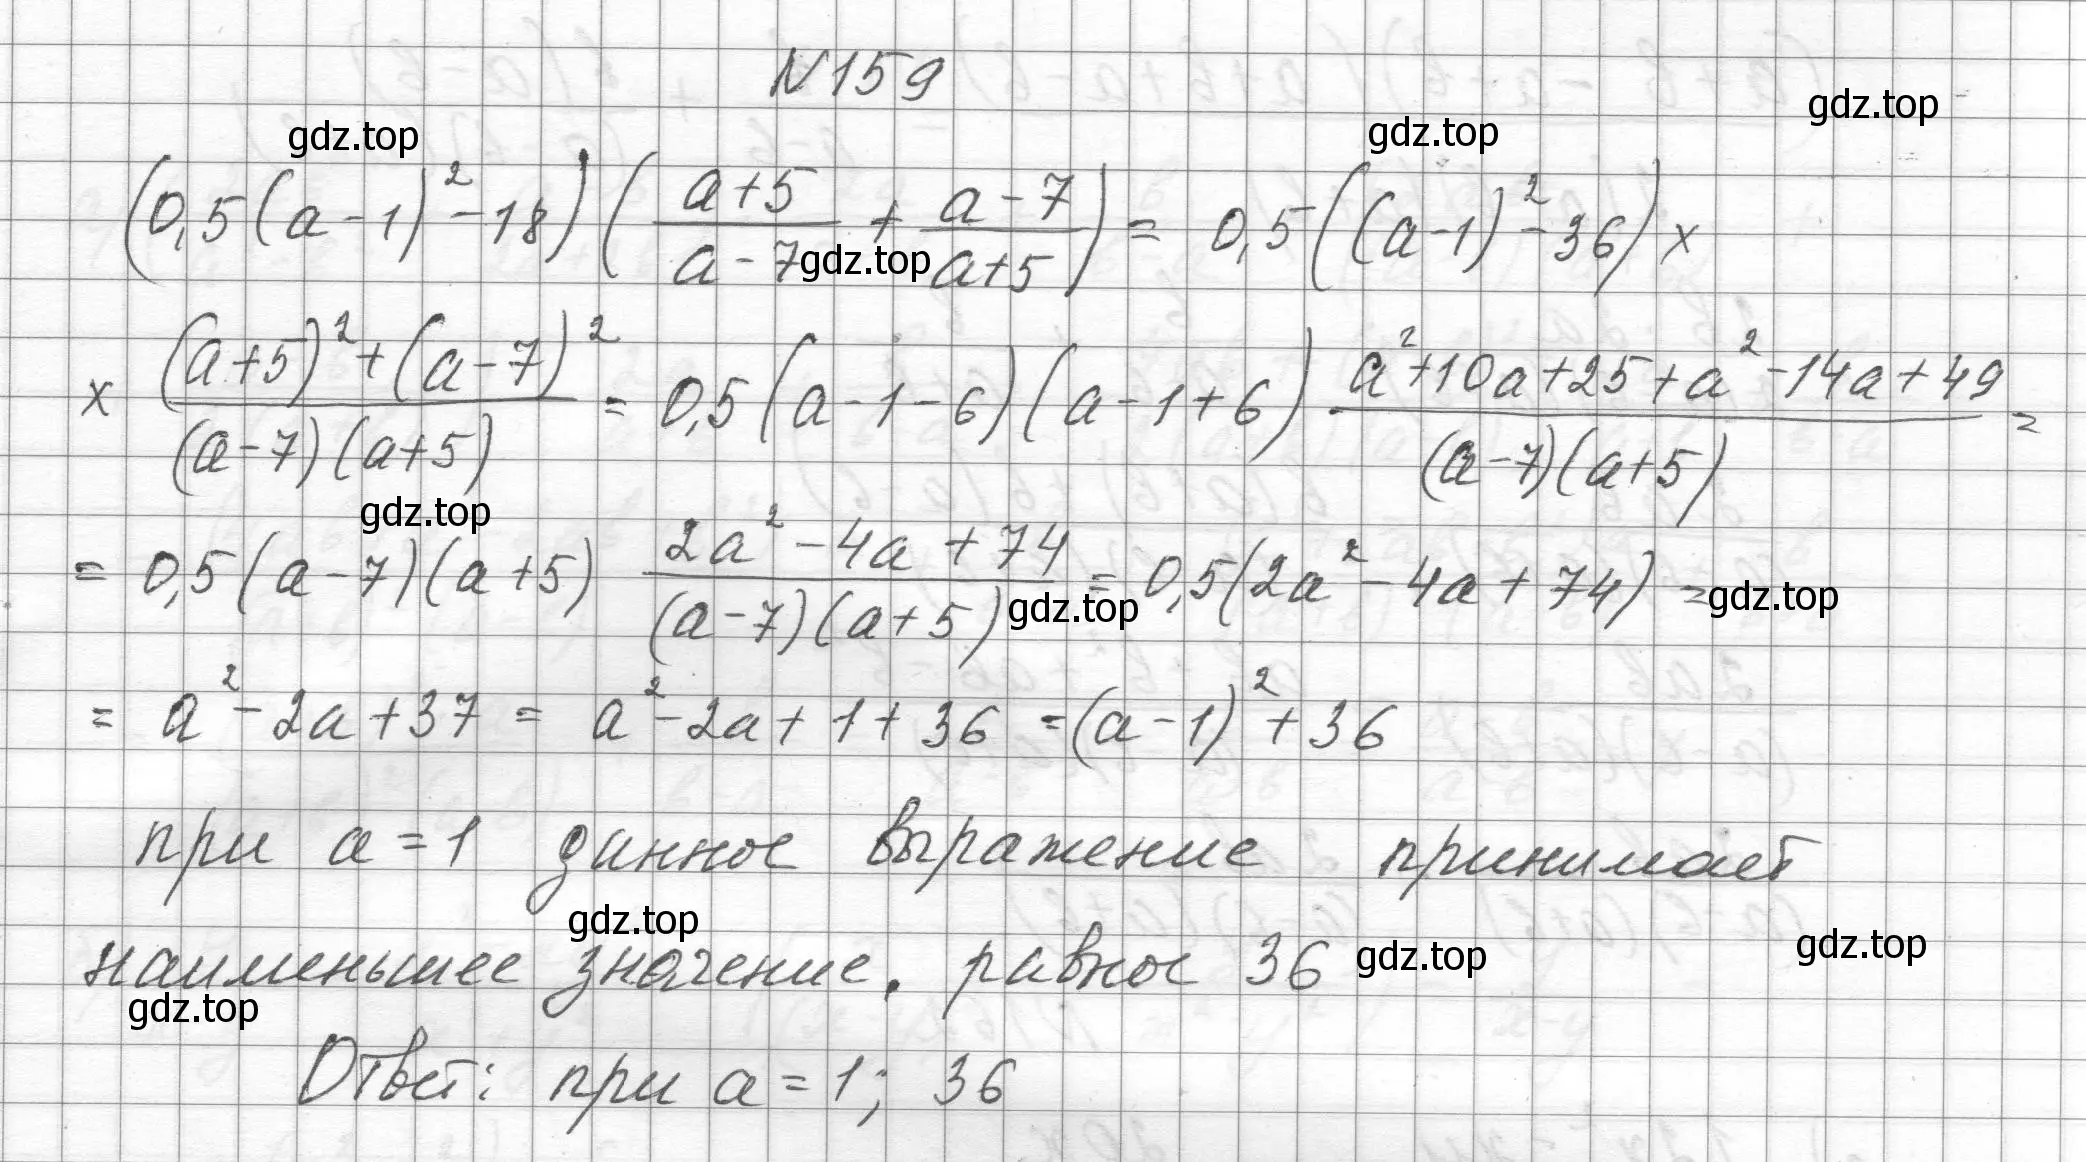 N 159
gdz.top gdz.top gdz.top
(0,5(a-1)²-18)((a+5)/(a-7) + (a-7)/(a+5)) = 0,5((a-1)²-36) x
gdz.top
x ((a+5)²+(a-7)²)/((a-7)(a+5)) = 0,5(a-1-6)(a-1+6) (a²+10a+25+a²-14a+49)/((a-7)(a+5)) =
gdz.top
= 0,5(a-7)(a+5) (2a²-4a+74)/((a-7)(a+5)) = 0,5(2a²-4a+74) =
gdz.top gdz.top
= a²-2a+37 = a²-2a+1+36 = (a-1)²+36
при a=1 данное выражение принимает
gdz.top
наименьшее значение. равное 36
gdz.top gdz.top
gdz.top
Ответ: при a=1; 36